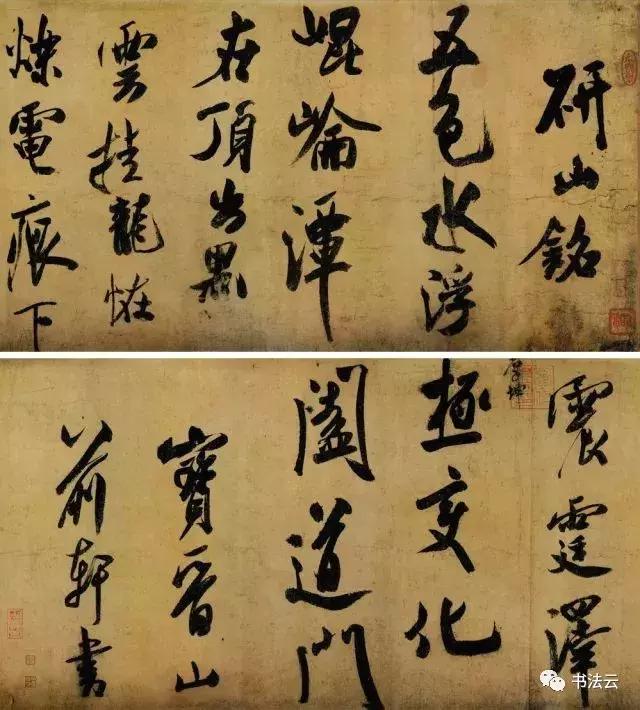 研山銘
五色水浮
崐崘潭
在頂出黑
雲挂龍恠
爍電痕下
震霆澤
極变化
闔道門
寶晉山
前軒書
书法云